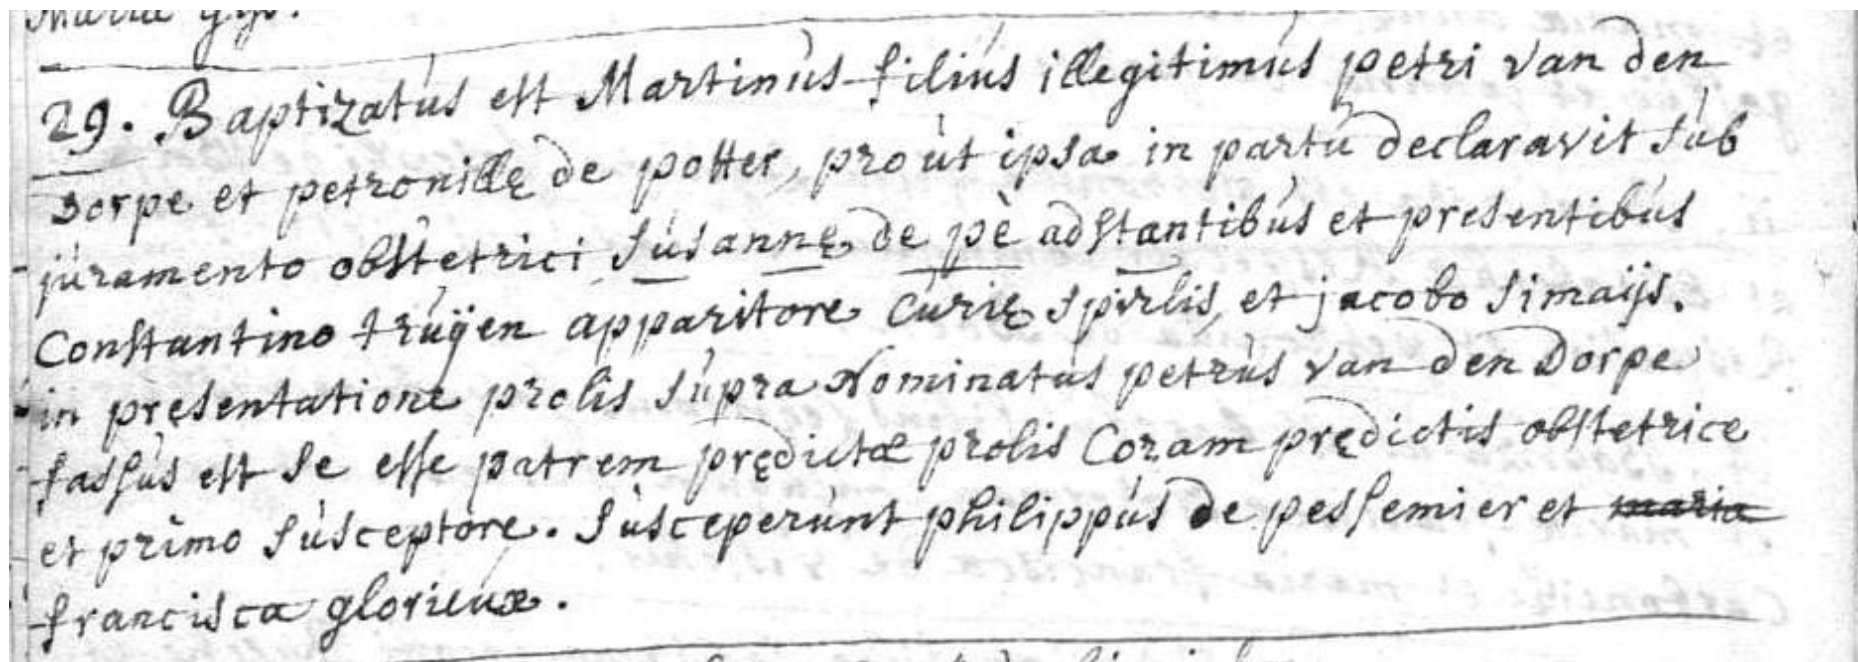 29. Baptizatús est Martinús filiús illegitimús petri van den
dorpe et petronillę de potter, proút ipsa in partú declaravit súb
júramento obstetrici súsannę de pè adstantibús et presentibús
Constantino trúÿen apparitore Cúrię spirlis, et jacobo simaijs.
in pręsentatione prolis súpra Nominatús petrús van den Dorpe
fassús est se esse patrem prędictæ prolis Coram prędictis obstetrice
et primo súsceptore. súscepérúnt philippús de pessemier et maria
francisca glorieux.